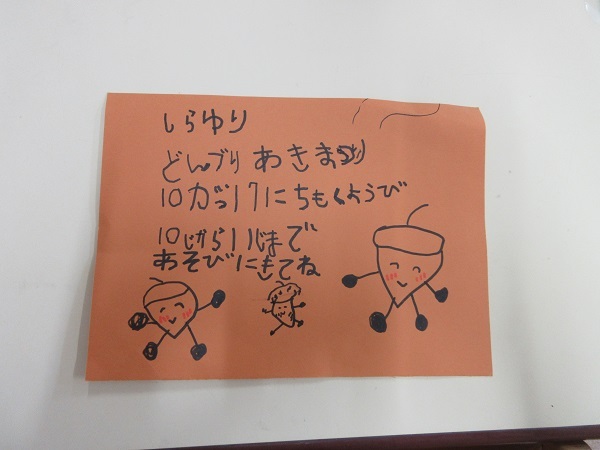 しらゆり
どんブリ あきまつり
10がつ17にちもくようび
10じから11じまで
あそびにきてね